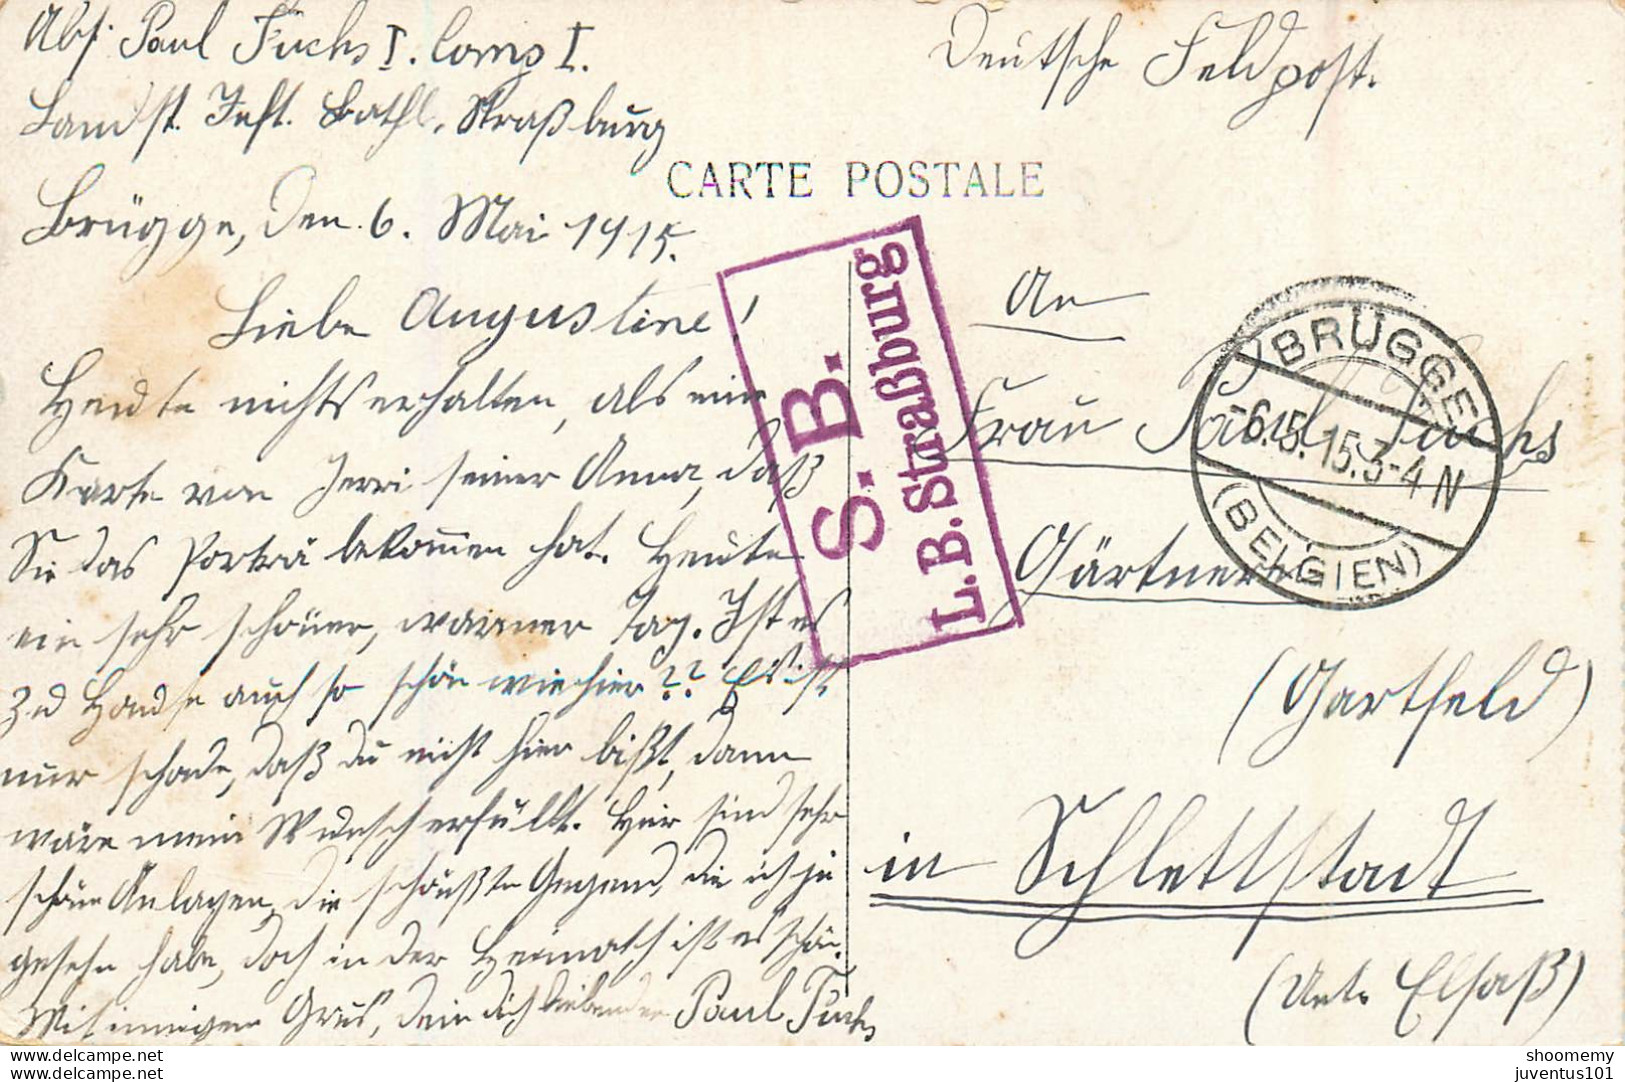 Abs. Paul Fuchs I. Comp I.
Landst. Inft. Bathl. Straßburg
Brügge, den 6. Mai 1915.
Liebe Augustine!
Heute nichts erhalten, als eine
Karte von Jerri seiner Anna, daß
Sie das Porträ bekommen hat. Heute
ein sehr schöner, warmer Tag. Ist es
zu Hause auch so schön wie hier?? Es ist
nur schade, daß du nicht hier bißt, dann
wäre mein Wunsch erfüllt. Hier sind sehr
schöne Anlagen, die schönßte Gegend, die ich je
gesehn habe, doch in der Heimath ist es schön.
Mit innigem Grus, dein dich liebender Paul Fuchs
Deutsche Feldpost.
CARTE POSTALE
S. B.
L. B. Straßburg
BRÜGGE
-6.5.15.3-4 N
(BELGIEN)
An
Frau Paul Fuchs
Gärtnerei
(Gartfeld)
in Schlettstadt
(Unt. Elsaß)
All-collection.com
www.delcampe.net
shoomemy
juventus101